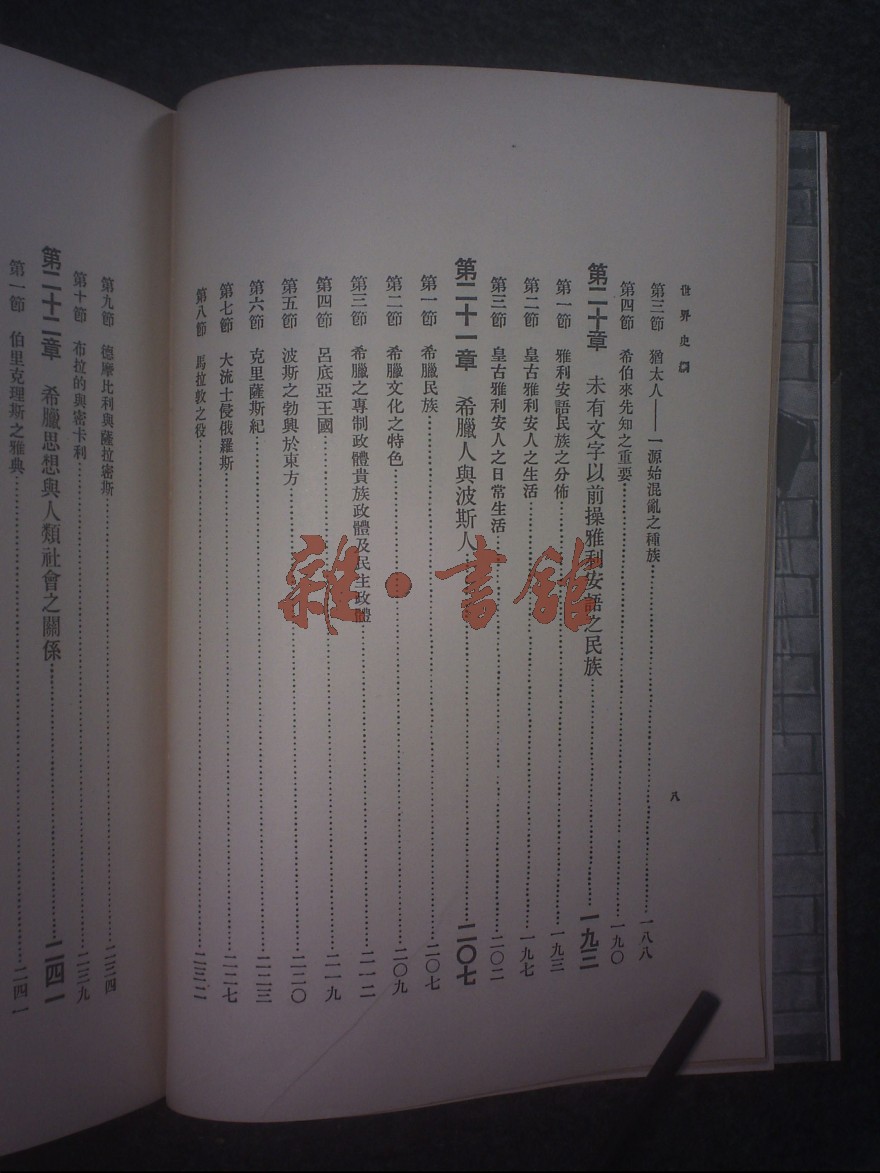 世界史綱
八
第三節　猶太人——一源始混亂之種族……一八八
第四節　希伯來先知之重要……一九〇
第二十章　未有文字以前操雅利安語之民族……一九三
第一節　雅利安語民族之分佈……一九三
第二節　皇古雅利安人之生活……一九七
第三節　皇古雅利安人之日常生活……二〇二
第二十一章　希臘人與波斯人……二〇七
第一節　希臘民族……二〇七
第二節　希臘文化之特色……二〇九
第三節　希臘之專制政體貴族政體及民主政體……二一二
第四節　呂底亞王國……二一九
第五節　波斯之勃興於東方……二二〇
第六節　克里薩斯紀……二二三
第七節　大流士侵俄羅斯……二二七
第八節　馬拉敦之役……二三二
第九節　德摩比利與薩拉密斯……二三四
第十節　布拉的與密卡利……二三九
第二十二章　希臘思想與人類社會之關係……二四一
第一節　伯里克理斯之雅典……二四一
雜·書館